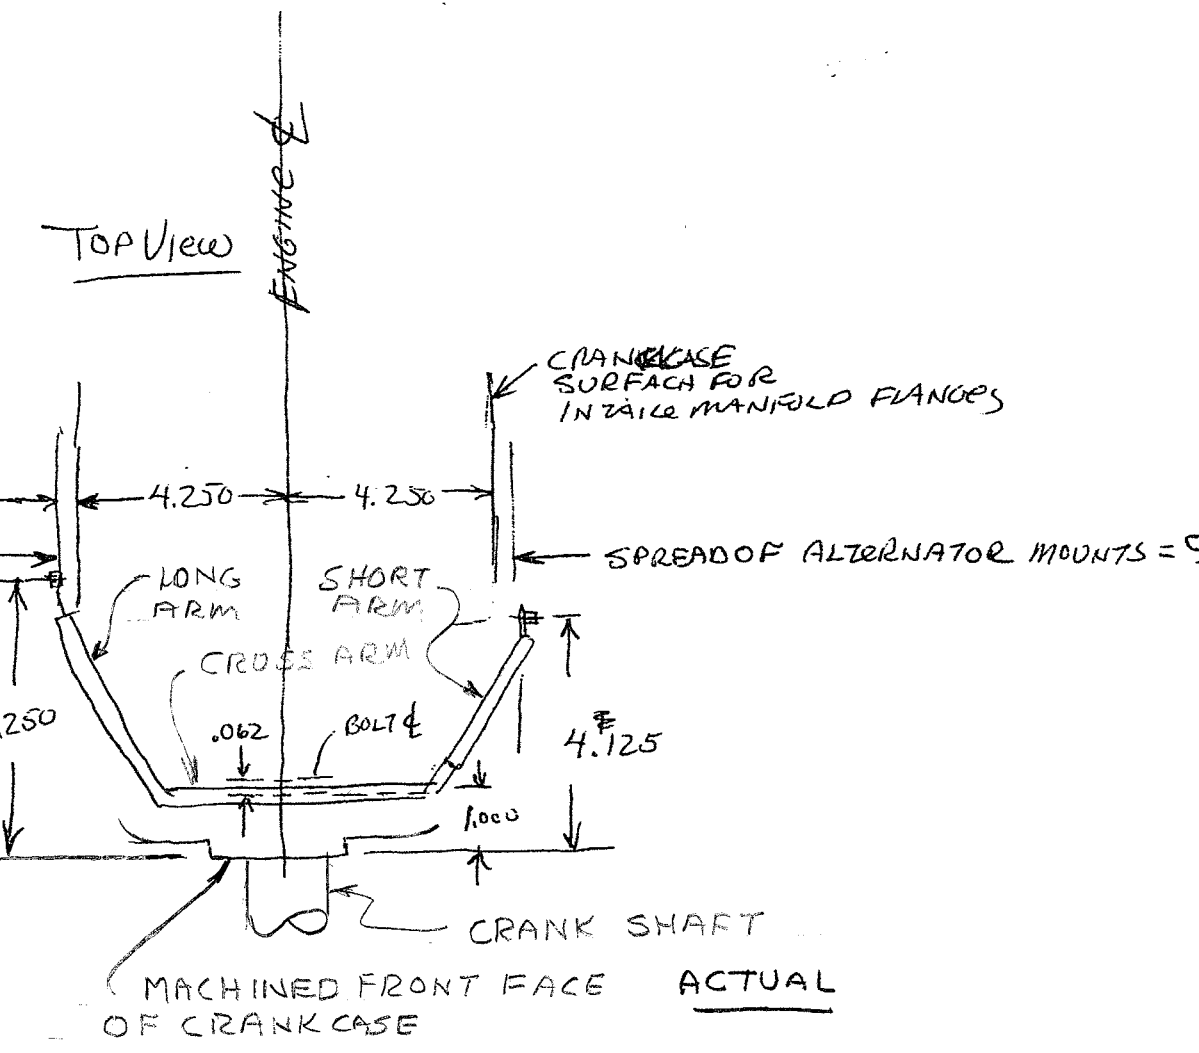 ENGINE ℄
TOP VIEW
CRANKCASE
SURFACH FOR
INTAKE MANIFOLD FLANGES
4.250
4.250
SPREAD OF ALTERNATOR MOUNTS = 9
LONG
ARM
SHORT
ARM
CROSS ARM
.250
.062
BOLT ℄
4.125
1.000
CRANK SHAFT
MACHINED FRONT FACE
OF CRANKCASE
ACTUAL